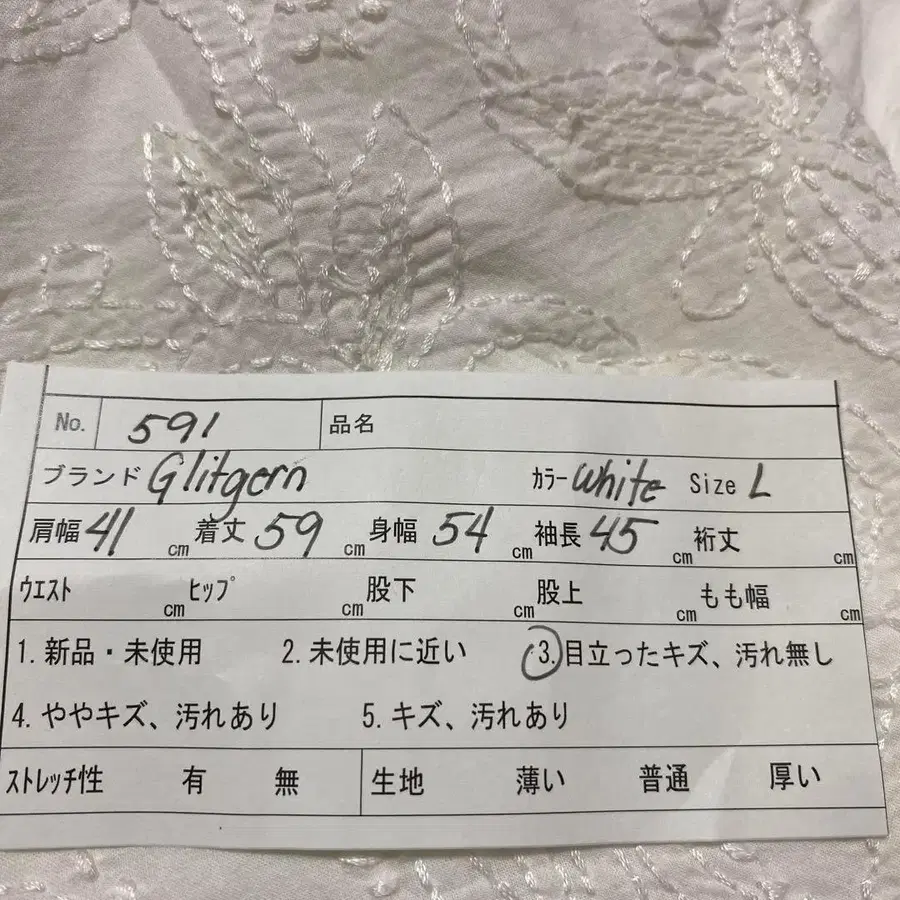 No. 591 品名
ブランド Glitgern カラー White Size L
肩幅 41 cm 着丈 59 cm 身幅 54 cm 袖長 45 cm 裄丈 cm
ウエスト cm ヒップ cm 股下 cm 股上 cm もも幅 cm
1. 新品・未使用 2. 未使用に近い 3. 目立ったキズ、汚れ無し
4. ややキズ、汚れあり 5. キズ、汚れあり
ストレッチ性 有 無 生地 薄い 普通 厚い